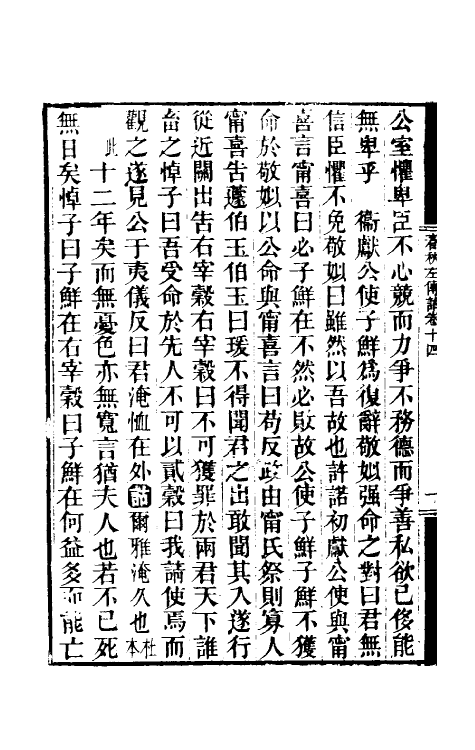 公室懼卑臣不心競而力爭不務德而爭善私欲已侈能
無卑乎　衞獻公使子鮮爲復辭敬姒强命之對曰君無
信臣懼不免敬姒曰雖然以吾故也許諾初獻公使與甯
喜言甯喜曰必子鮮在不然必敗故公使子鮮子鮮不獲
命於敬姒以公命與甯喜言曰苟反政由甯氏祭則寡人
甯喜告蘧伯玉伯玉曰瑗不得聞君之出敢聞其入遂行
從近關出告右宰穀右宰穀曰不可獲罪於兩君天下誰
畜之悼子曰吾受命於先人不可以貳穀曰我請使焉而
觀之遂見公于夷儀反曰君淹恤在外詁爾雅淹久也杜本
此十二年矣而無憂色亦無寬言猶夫人也若不已死
無日矣悼子曰子鮮在右宰穀曰子鮮在何益多而能亡
春秋左傳詁卷十四
一